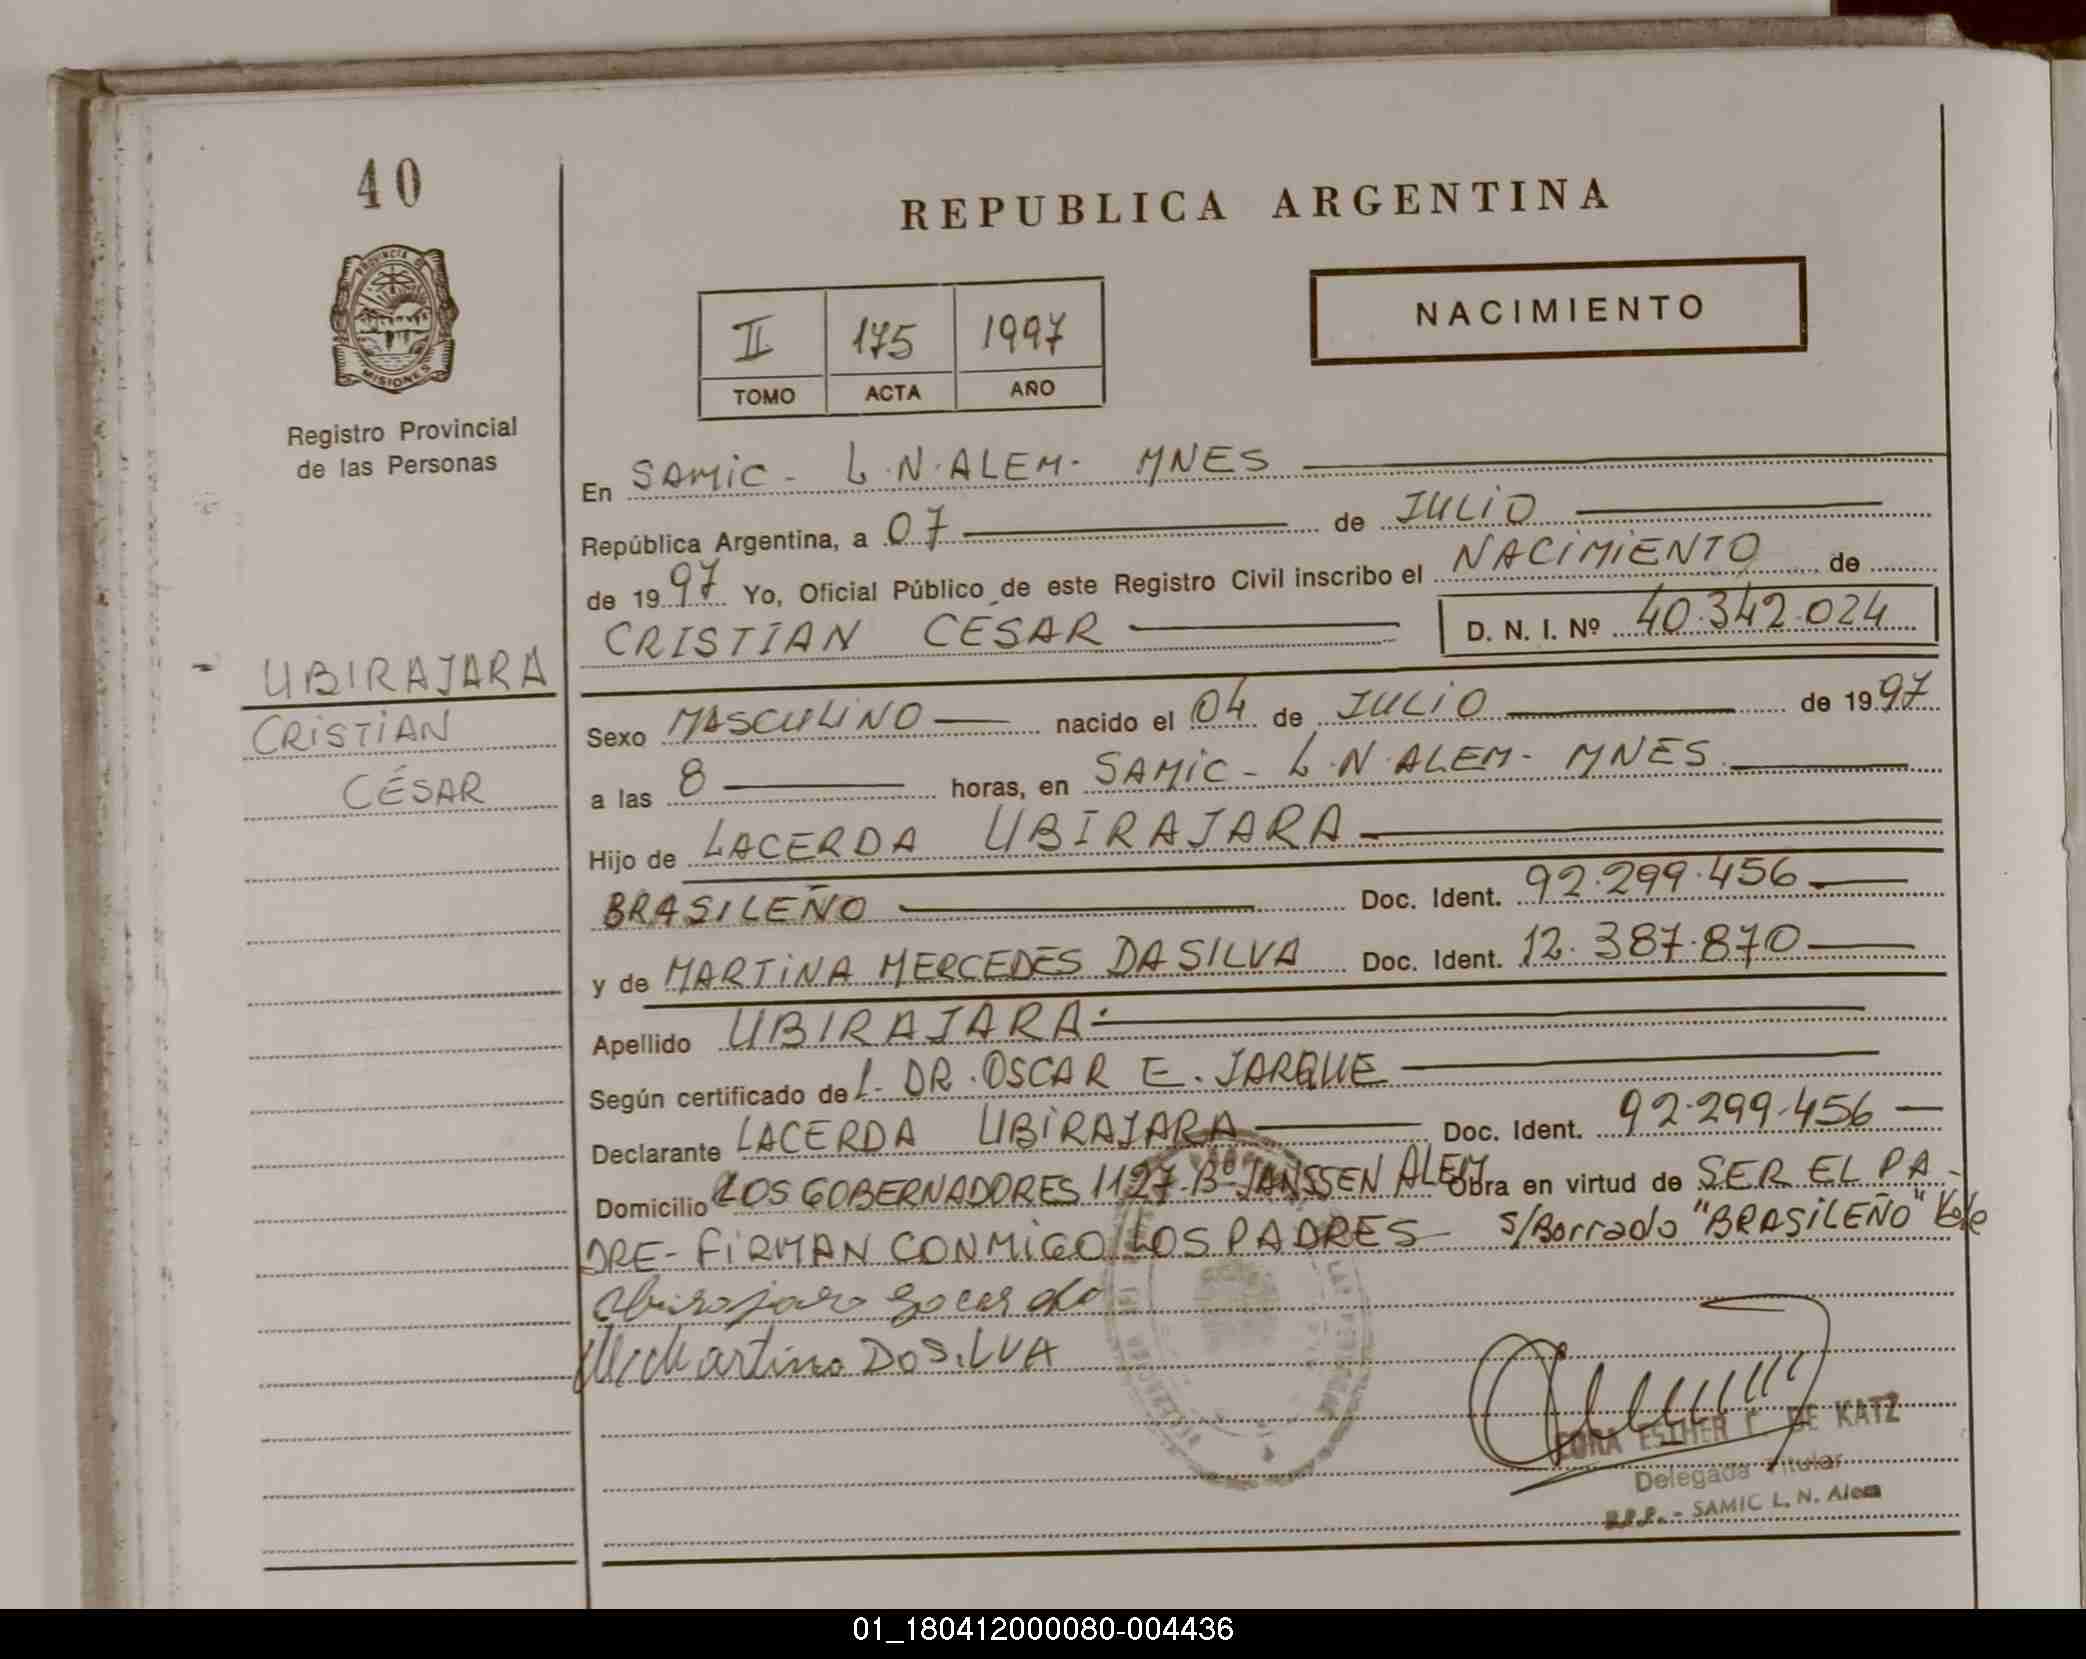 40
PROVINCIA DE
MISIONES
Registro Provincial
de las Personas
UBIRAJARA
CRISTIAN
CÉSAR
REPUBLICA ARGENTINA
II 175 1997
TOMO ACTA AÑO
NACIMIENTO
En SAMIC - L.N.ALEM- MNES
República Argentina, a 07 de JULIO
de 1997 Yo, Oficial Público de este Registro Civil inscribo el NACIMIENTO de
CRISTIAN CÉSAR D. N. I. Nº 40.342.024
Sexo MASCULINO nacido el 04 de JULIO de 1997
a las 8 horas, en SAMIC - L.N.ALEM- MNES
Hijo de LACERDA UBIRAJARA
BRASILEÑO Doc. Ident. 92.299.456
y de MARTINA MERCEDES DA SILVA Doc. Ident. 12.387.870
Apellido UBIRAJARA
Según certificado de L. DR. OSCAR E. JARQUE
Declarante LACERDA UBIRAJARA Doc. Ident. 92.299.456
Domicilio LOS GOBERNADORES 1127-Bº JANSSEN ALEM Obra en virtud de SER EL PA-
DRE- FIRMAN CONMIGO LOS PADRES s/Borrado "BRASILEÑO" Vale
Martina DaSILVA
CORA ESTHER C. DE KATZ
Delegada Titular
R.P.P. - SAMIC L. N. Alem
01_180412000080-004436